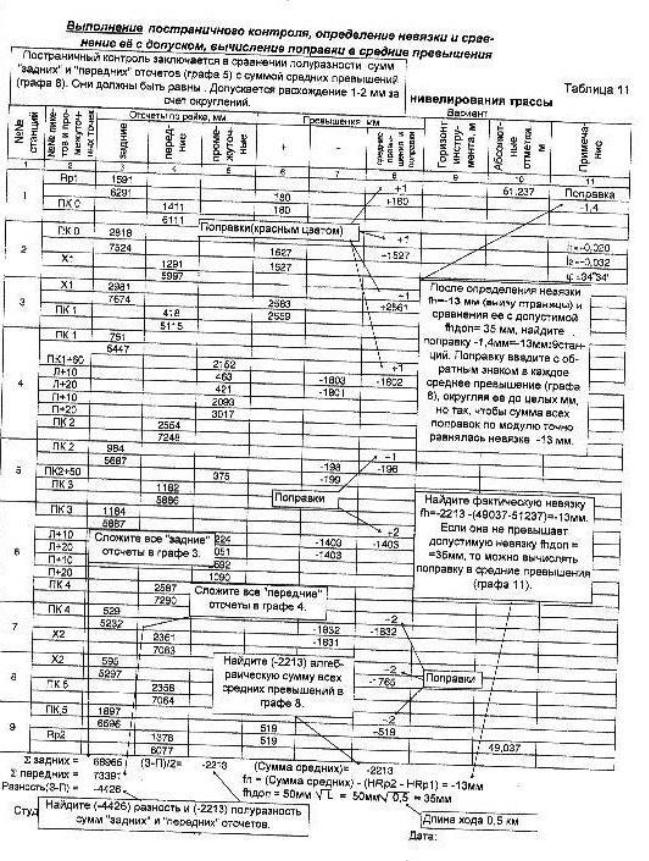 Выполнение постраничного контроля, определение невязки и срав-
нение её с допуском, вычисление поправки в средние превышения
Постраничный контроль заключается в сравнении полуразности сумм
"задних" и "передних" отсчетов (графа 5) с суммой средних превышений
(графа 8). Они должны быть равны . Допускается расхождение 1-2 мм за
счет округлений.
Таблица 11
нивелирования трассы
Вариант
№№ станций
№№ пике-
тов и про-
межуточ-
ных точек
Отсчеты по рейке, мм
задние
перед-
ние
проме-
жуточ-
ные
Превышения, мм
+
-
средние
превы-
шения и
поправки
Горизонт
инстру-
мента, м
Абсолют-
ные
отметки,
м
Примеча-
ние
1 2 3 4 5 6 7 8 9 10 11
1 Rp1 1591 +1 51,237 Поправка
6291 180 +180 -1,4
ПК 0 1411 180
6111
Поправки(красным цветом)
2 ПК 0 2818 +1
7524 1627 -1527
X1 1291 1527
5997
3 X1 2981 -1
7674 2563 +2561
ПК 1 418 2559
5115
После определения невязки
fh=-13 мм (внизу страницы) и
сравнения ее с допустимой
fhдоп= 35 мм, найдите
поправку -1,4мм=-13мм:9стан-
ций. Поправку введите с об-
ратным знаком в каждое
среднее превышение (графа
8), округляя её до целых мм,
но так, чтобы сумма всех
поправок по модулю точно
равнялась невязке -13 мм.
4 ПК 1 751
5447
ПК1+60 2152 +1
Л+10 463 -1803 -1802
Л+20 421 -1801
П+10 2093
П+20 3017
ПК 2 2554
7248
5 ПК 2 984 -1
5687 -198 -198
ПК2+50 375 -199
ПК 3 1182
5886
Поправки
6 ПК 3 1184
5887
Л+10 +2
Л+20 051 -1403 -1403
П+10 -1403
П+20 1090
ПК 4 2587
7290
Сложите все "задние"
отсчеты в графе 3.
Найдите фактическую невязку
fh=-2213 -(49037-51237)=-13мм.
Если она не превышает
допустимую невязку fhдоп =
=35мм, то можно вычислять
поправку в средние превышения
(графа 11).
Сложите все "передние"
отсчеты в графе 4.
7 ПК 4 529 -2
5232 -1832 -1832
X2 2361 -1831
7063
8 X2 595 -2
5297 -1765
ПК 5 2358
7064
Найдите (-2213) алгеб-
раическую сумму всех
средних превышений в
графе 8.
Поправки
9 ПК 5 1897 -2
6596 519 -519
Rp2 1378 519
6077 49,037
Σ задних = 68965 (З-П)/2= -2213 (Сумма средних)= -2213
Σ передних = 73391 fh = (Сумма средних) - (HRp2 - HRp1) = -13мм
Разность(З-П) = -4426 fhдоп = 50мм √L = 50мм√0,5 ≈ 35мм
Найдите (-4426) разность и (-2213) полуразность
сумм "задних" и "передних" отсчетов.
Длина хода 0,5 км
Студ
Дата: